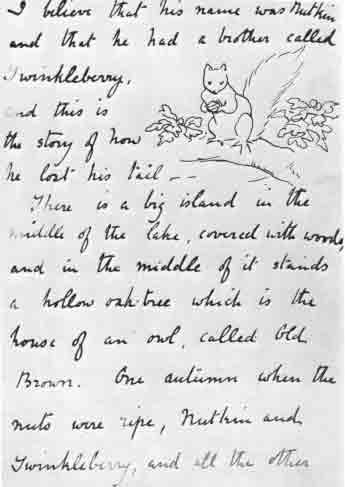 I believe that his name was Nutkin
and that he had a brother called
Twinkleberry,
and this is
the story of how
he lost his tail --
There is a big island in the
middle of the lake, covered with woods,
and in the middle of it stands
a hollow oak-tree which is the
house of an owl, called Old
Brown. One autumn when the
nuts were ripe, Nutkin and
Twinkleberry, and all the other